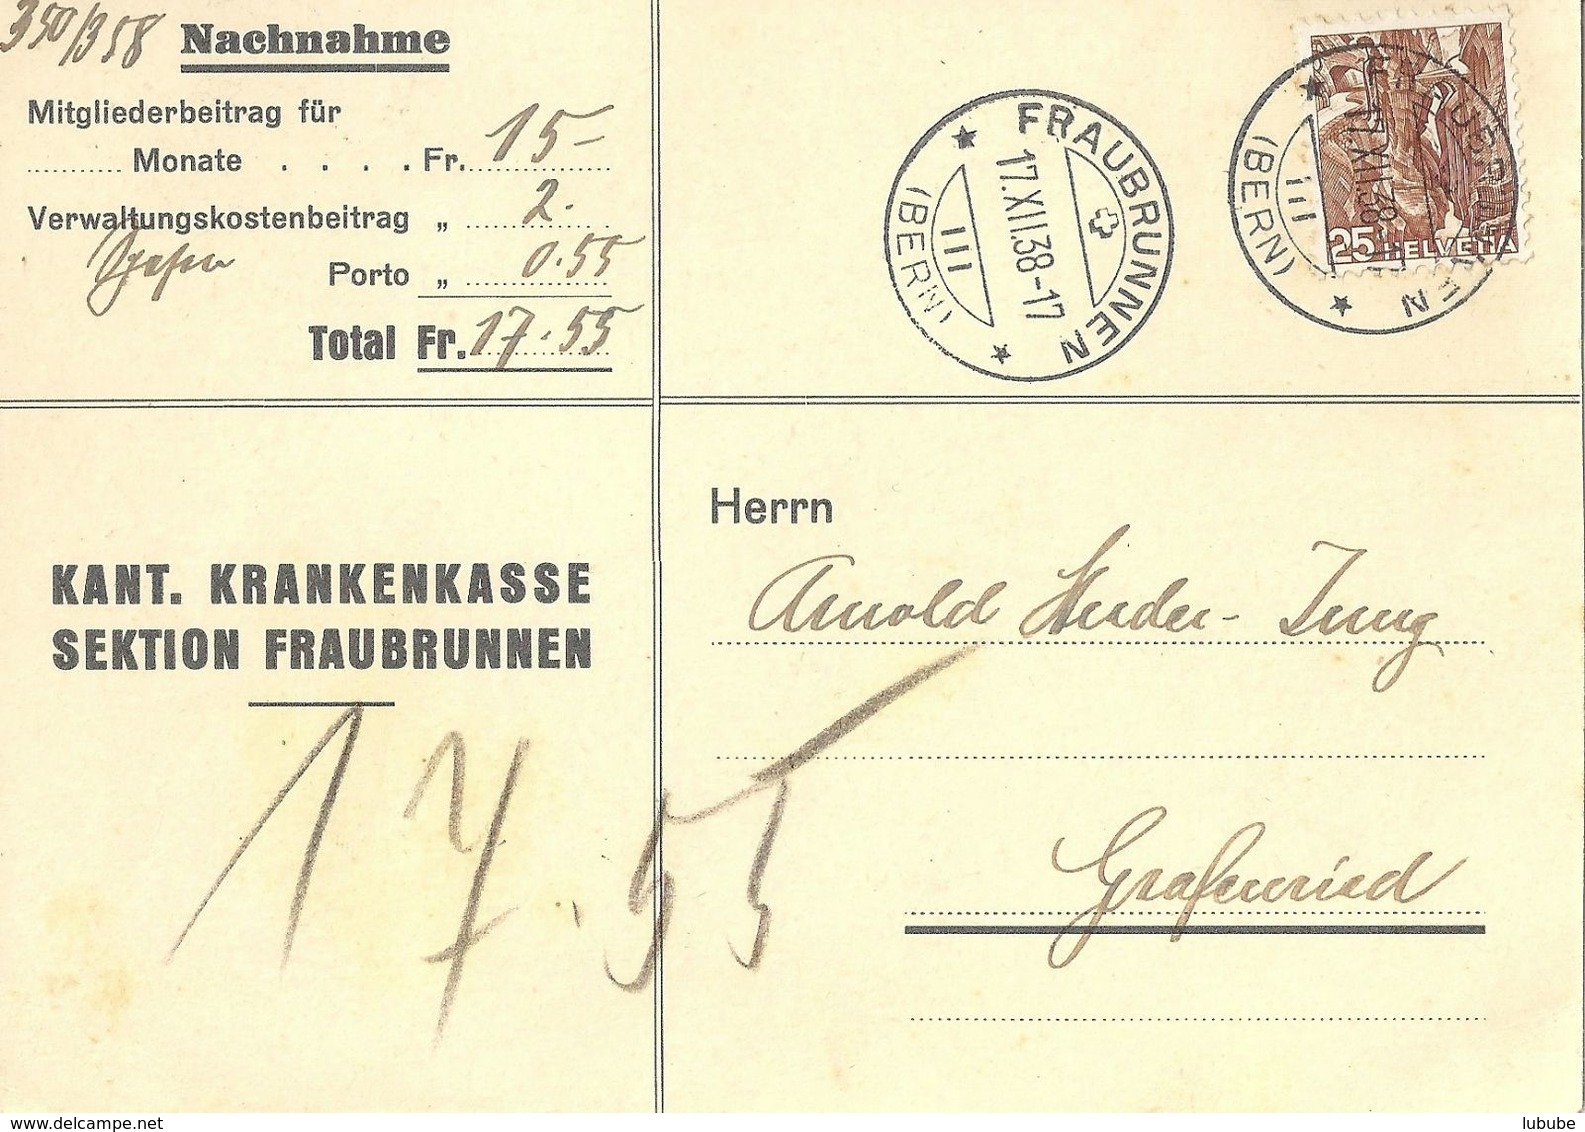 350/358 Nachnahme
Mitgliederbeitrag für
............ Monate . . . . Fr. 15-
Verwaltungskostenbeitrag „ 2.
Spesen Porto „ 0.55
Total Fr. 17.55
FRAUBRUNNEN
17.XII.38-17
III
(BERN)
FRAUBRUNNEN
17.XII.38-17
III
(BERN)
25 HELVETIA
KANT. KRANKENKASSE
SEKTION FRAUBRUNNEN
17.55
Herrn
Arnold - Jung
Grafenried
www.delcampe.net
lubube